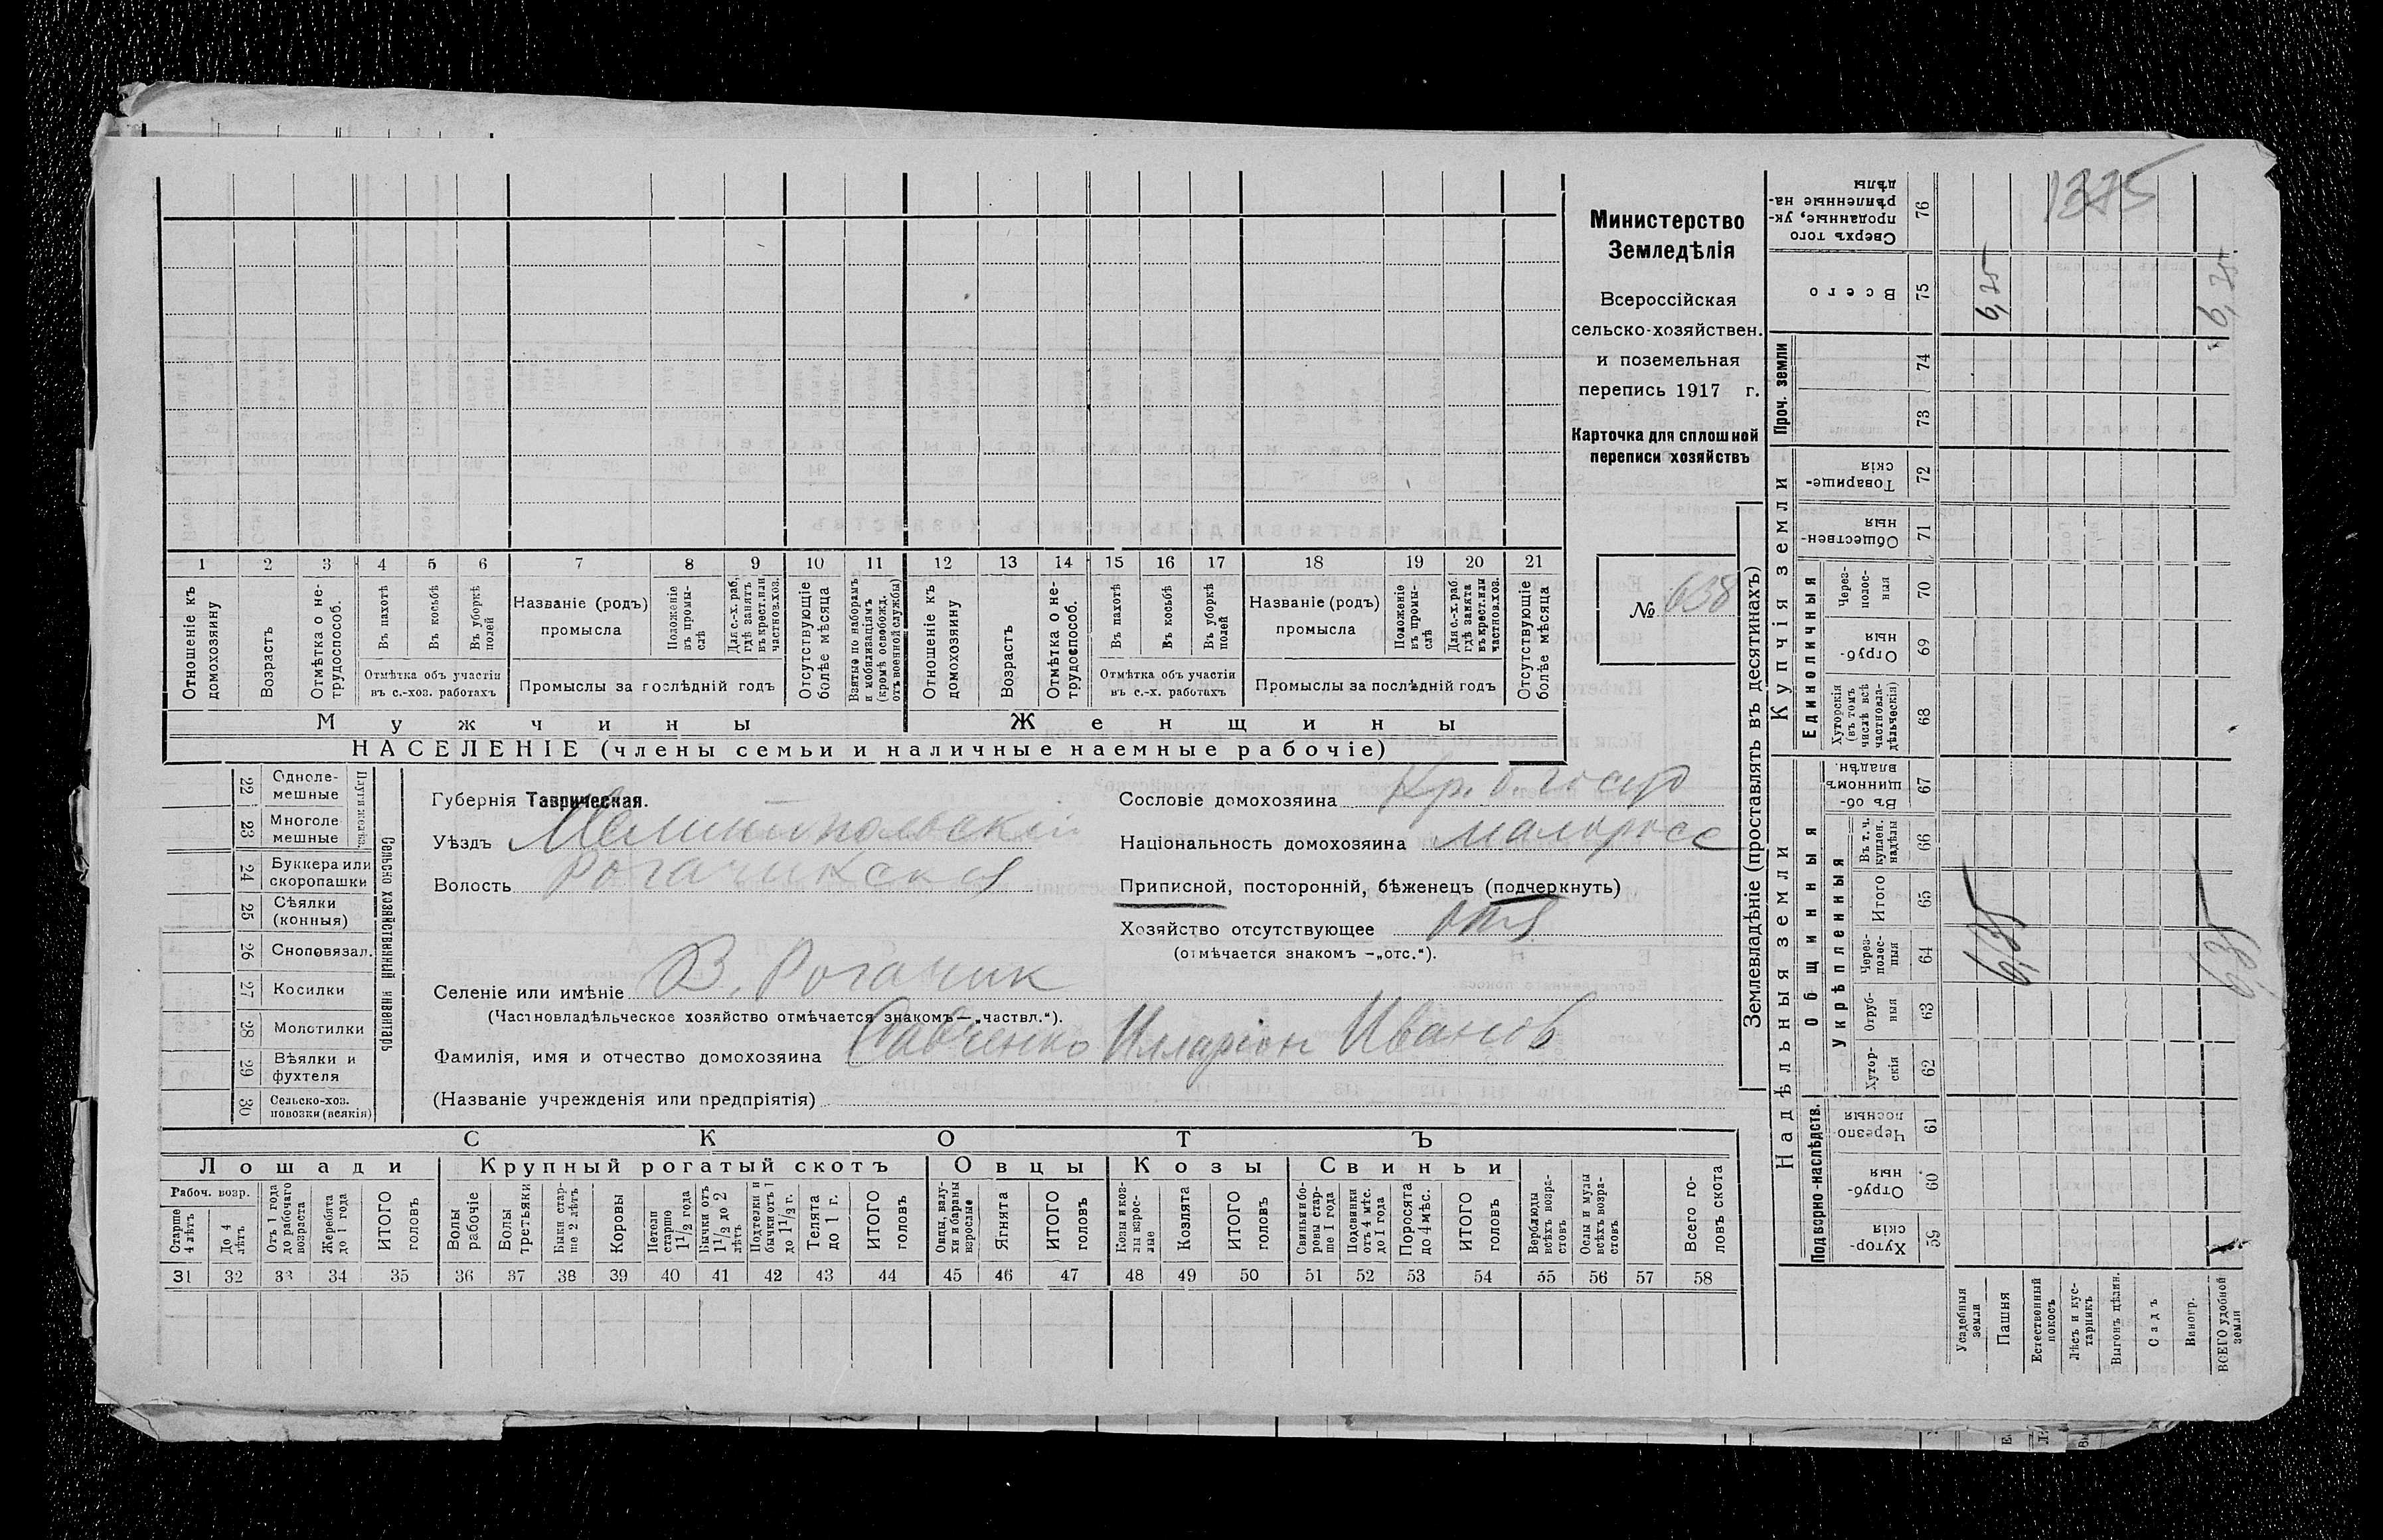 Министерство
Земледѣлія
Всероссійская
сельско-хозяйствен.
и поземельная
перепись 1917 г.
Карточка для сплошной
переписи хозяйствъ
№ 638
1 2 3 4 5 6 7 8 9 10 11 12 13 14 15 16 17 18 19 20 21
Отношеніе къ домохозяину
Возрастъ
Отмѣтка о не-трудоспособ.
Въ пахотѣ
Въ косьбѣ
Въ уборкѣ полей
Отмѣтка объ участіи въ с.-хоз. работахъ
Названіе (родъ) промысла
Положеніе въ промы-слѣ
Для с.-х. раб, гдѣ занятъ въ крест. или частнов. хоз.
Промыслы за послѣдній годъ
Отсутствующіе болѣе мѣсяца
Взятые по наборамъ и мобилизаціямъ (кромѣ освобожд. отъ военной службы)
Отношеніе къ домохозяину
Возрастъ
Отмѣтка о не-трудоспособ.
Въ пахотѣ
Въ косьбѣ
Въ уборкѣ полей
Отмѣтка объ участіи въ с.-х. работахъ
Названіе (родъ) промысла
Положеніе въ промы-слѣ
Для с.-х. раб гдѣ занята въ крест. или частнов. хоз.
Промыслы за послѣдній годъ
Отсутствующіе болѣе мѣсяца
Мужчины Женщины
НАСЕЛЕНІЕ (члены семьи и наличные наемные рабочіе)
22 Одноле-мешные
23 Многоле мешные
24 Буккера или скоропашки
25 Сѣялки (конныя)
26 Сноповязал.
27 Косилки
28 Молотилки
29 Вѣялки и фухтеля
30 Сельско-хоз. повозки (всякія)
Сельско хозяйственный инвентарь
Губернія Таврическая.
Уѣздъ Мелитопольскій
Волость Рогачикская
Селеніе или имѣніе В. Рогачик
(Частновладѣльческое хозяйство отмѣчается знакомъ—„частвл.“).
Фамилія, имя и отчество домохозяина Савченко Илларіон Иванов
(Названіе учрежденія или предпріятія)
Сословіе домохозяина Кр. б. госуд
Національность домохозяина малоросс
Приписной, посторонній, бѣженецъ (подчеркнуть)
Хозяйство отсутствующее
(отмѣчается знакомъ —„отс.“).
СКОТЪ
Лошади Крупный рогатый скотъ Овцы Козы Свиньи
Рабоч. возр.
Старше 4 лѣтъ
До 4 лѣтъ
Отъ 1 года до рабочаго возраста
Жеребята до 1 года
ИТОГО головъ
Волы рабочіе
Волы третьяки
Быки стар-ше 2 лѣтъ
Коровы
Нетели старше 1½ года
Бычки отъ 1½ до 2 лѣтъ
Подтелки и бычки отъ 1 до 1½ г.
Телята до 1 г.
ИТОГО головъ
Овцы, валу-хи и бараны взрослые
Ягнята
ИТОГО головъ
Козы и коз-лы взрос-лые
Козлята
ИТОГО головъ
Свиньи и бо-ровы стар-ше 1 года
Подсвинки отъ 4 мѣс. до 1 года
Поросята до 4 мѣс.
ИТОГО головъ
Верблюды всѣхъ возра-стовъ
Ослы и мулы всѣхъ возра-стовъ
Всего го-ловъ скота
31 32 33 34 35 36 37 38 39 40 41 42 43 44 45 46 47 48 49 50 51 52 53 54 55 56 57 58
Землевладѣніе (проставлять въ десятинахъ)
Надѣльныя земли
Купчія земли
Проч. земли
Подворно-наслѣдств.
Общинныя
Укрѣпленныя
Единоличныя
Хутор-скія 59
Отруб-ныя 60
Черезпо-лосныя 61
Хутор-скія 62
Отруб-ныя 63
Через-полос-ныя 64
Итого 65
Въ т. ч. куплен. надѣлы 66
Въ об-щинномъ владѣн. 67
Хуторскія (въ томъ числѣ всѣ частновла-дѣльческія) 68
Отруб-ныя 69
Через-полос-ныя 70
Обществен-ныя 71
Товарище-скія 72
73
74
Всего 75
Сверхъ того проданные, ук-рѣпленные на-дѣлы 76
1375
6,25
6,25
6,25
Усадебныя земли
Пашня
Естественный покосъ
Лѣсъ и кус-тарникъ
Выгонъ цѣлин.
Садъ
Виногр.
ВСЕГО удобной земли